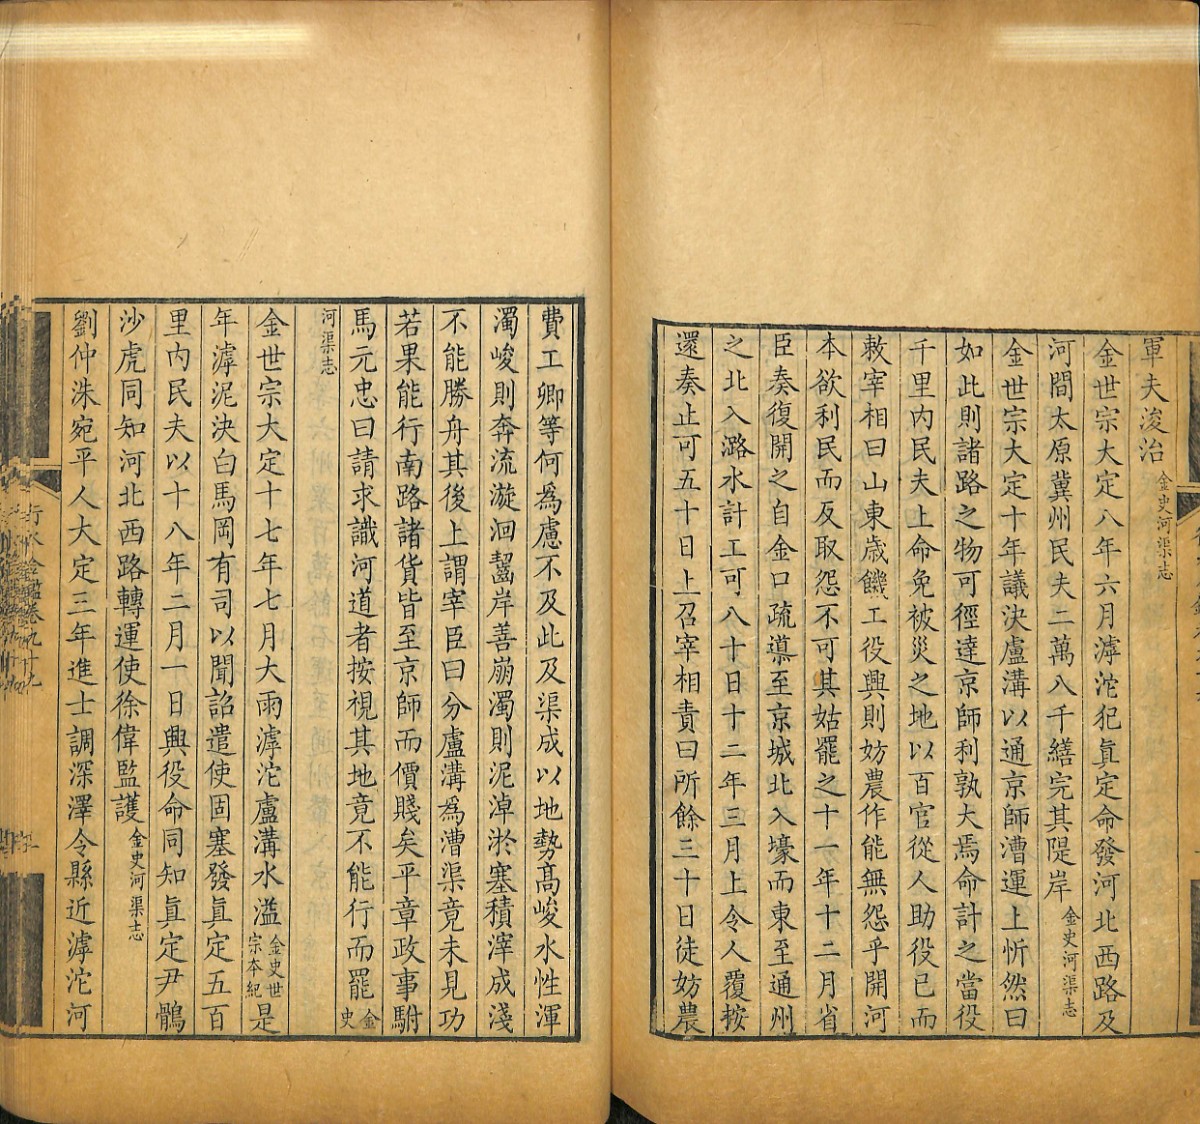 軍夫浚治金史河渠志
金世宗大定八年六月滹沱犯眞定命發河北西路及
河間太原冀州民夫二萬八千繕完其隄岸金史河渠志
金世宗大定十年議決盧溝以通京師漕運上忻然曰
如此則諸路之物可徑達京師利孰大焉命計之當役
千里內民夫上命免被災之地以百官從人助役已而
敕宰相曰山東歲饑工役興則妨農作能無怨乎開河
本欲利民而反取怨不可其姑罷之十一年十二月省
臣奏復開之自金口疏導至京城北入壕而東至通州
之北入潞水計工可八十日十二年三月上令人覆按
還奏止可五十日上召宰相責曰所餘三十日徒妨農
費工卿等何爲慮不及此及渠成以地勢高峻水性渾
濁峻則奔流漩洄齧岸善崩濁則泥淖淤塞積滓成淺
不能勝舟其後上謂宰臣曰分盧溝爲漕渠竟未見功
若果能行南路諸貨皆至京師而價賤矣平章政事駙
馬元忠曰請求識河道者按視其地竟不能行而罷金史
河渠志
金世宗大定十七年七月大雨滹沱盧溝水溢金史世宗本紀是
年滹泥決白馬岡有司以聞詔遣使固塞發眞定五百
里內民夫以十八年二月一日興役命同知眞定尹鶻
沙虎同知河北西路轉運使徐偉監護金史河渠志
劉仲洙宛平人大定三年進士調深澤令縣近滹沱河
行水金鑑卷九十九